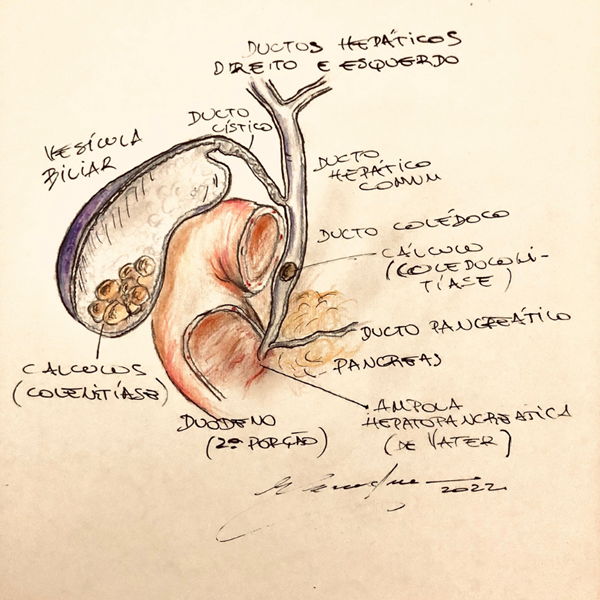 DUCTOS HEPÁTICOS
DIREITO E ESQUERDO
DUCTO
CÍSTICO
VESÍCULA
BILIAR
DUCTO
HEPÁTICO
COMUM
DUCTO COLÉDOCO
CÁLCULO
(COLEDOCOLI-
TÍASE)
DUCTO PANCREÁTICO
PANCREAS
CALCULOS
(COLELITÍASE)
DUODENO
(2ª PORÇÃO)
AMPOLA
HEPATOPANCREATICA
(DE VATER)
2022